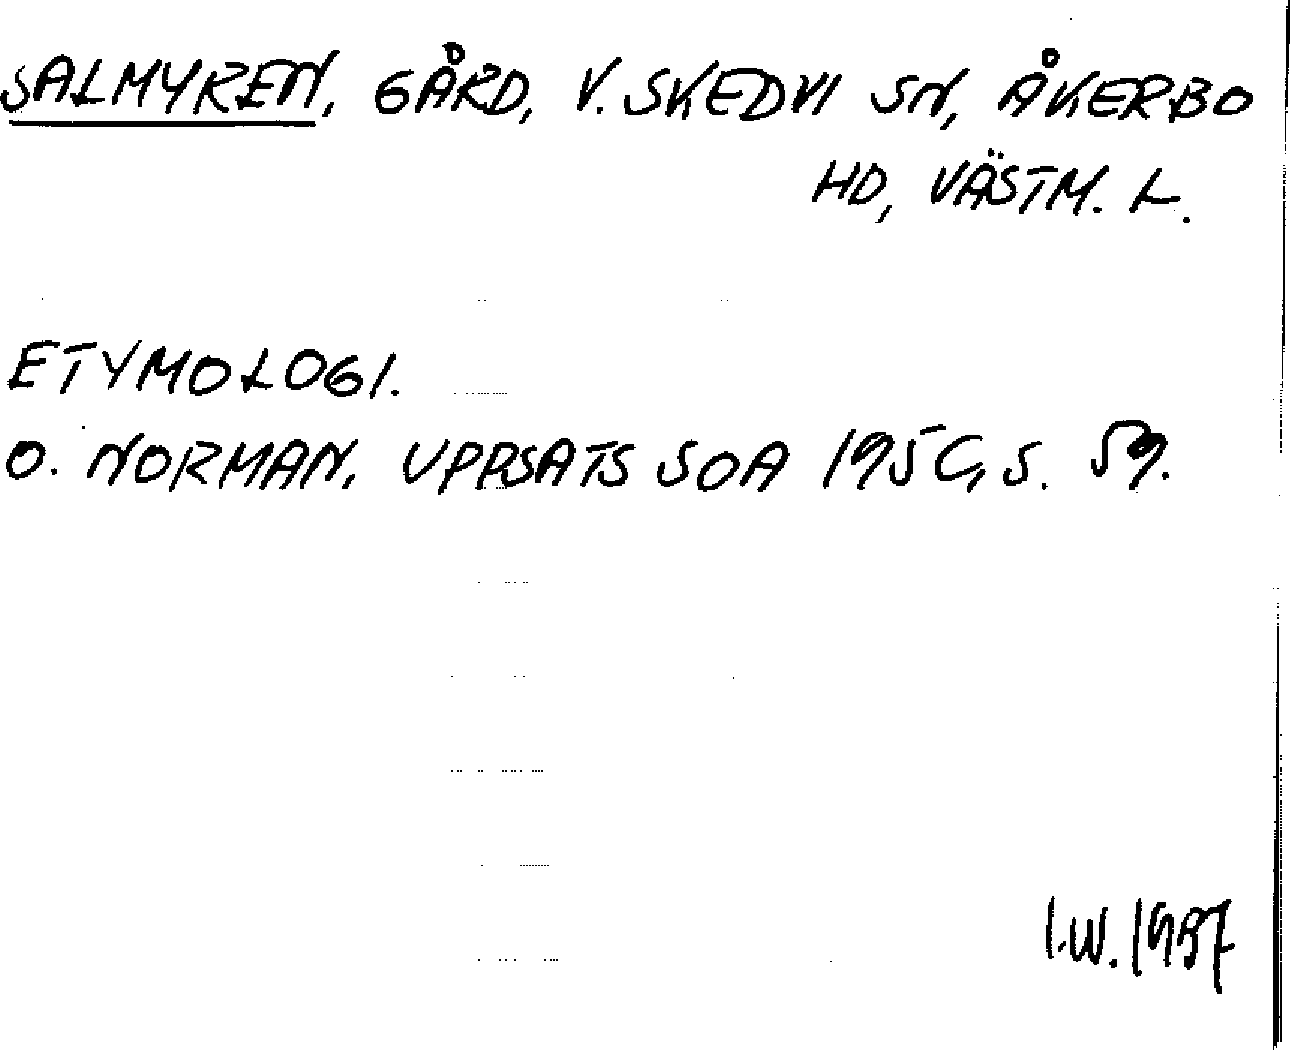 SALMYREN, GÅRD, V. SKEDVI SN, ÅKERBO
HD, VÄSTM. L.
ETYMOLOGI.
O. NORMAN. UPPSATS SOA 1956, S. 59.
I.W. 1987